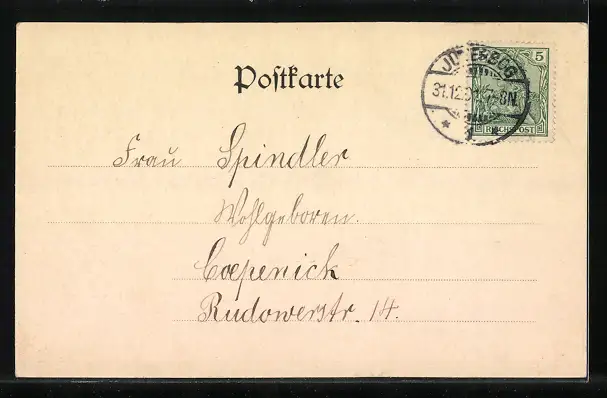 Postkarte
JÜTERBOG
31.12.
5
REICHSPOST
Frau Spindler
Wohlgeboren.
Coepenick
Rudowerstr. 14.